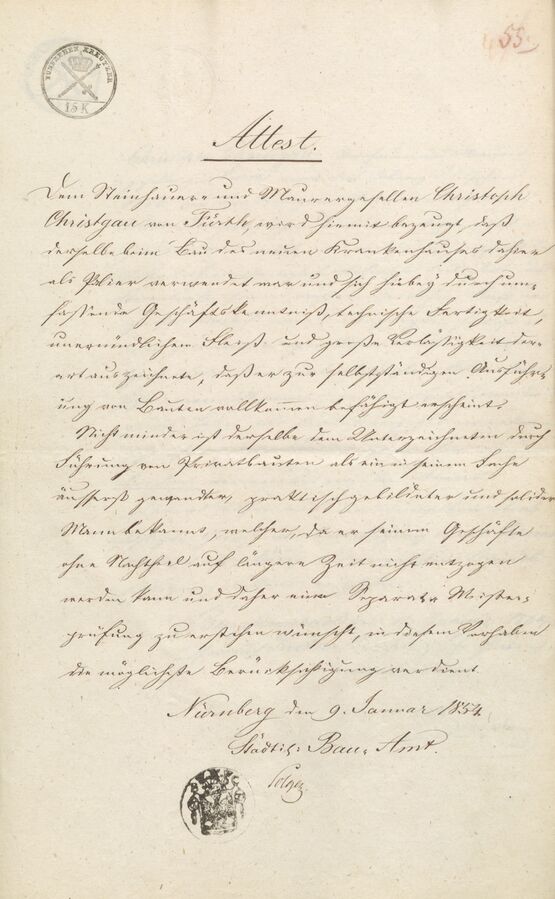 55.
FÜNFZEHEN KREUTZER
15 K
Attest.
Dem Steinhauer- und Maurergesellen Christoph
Christgau von Fürth, wird hiemit bezeugt, daß
derselbe beim Bau des neuen Krankenhauses dahier
als Polier verwendet war und sich hiebey durch um-
fassende Geschäftskenntniß, technische Fertigkeit,
unermüdlichen Fleiß und große Verlässigkeit der-
art auszeichnete, daß er zur selbstständigen Ausführ-
ung von Bauten vollkommen befähigt erscheint.
Nicht minder ist derselbe dem Unterzeichneten durch
Führung von Privatbauten als ein in seinem Fache
äusserst gewandter, praktisch gebildeter und solider
Mann bekannt, welcher, da er seinem Geschäfte
ohne Nachtheil auf längere Zeit nicht entzogen
werden kann und daher eine Separat-Meister-
prüfung zu erstehen wünscht, in diesem Vorhaben
die möglichste Berücksichtigung verdient.
Nürnberg den 9. Januar 1854.
Städtis: Bau-Amt.